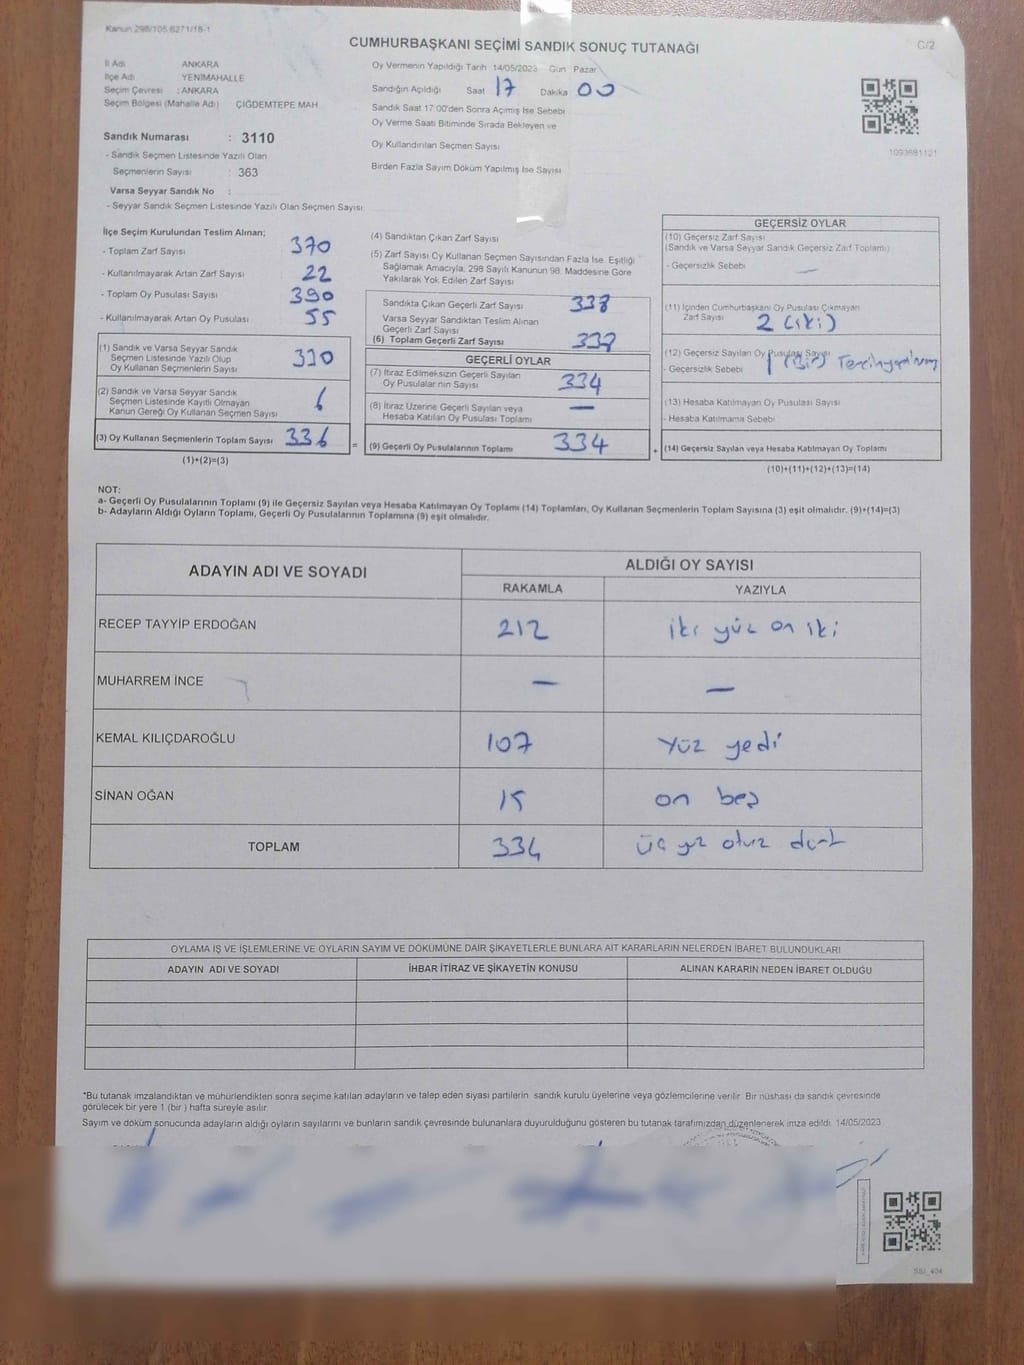 Kanun 298/105 6271/18-1
CUMHURBAŞKANI SEÇİMİ SANDIK SONUÇ TUTANAĞI
C/2
İl Adı ANKARA
İlçe Adı YENİMAHALLE
Seçim Çevresi : ANKARA
Seçim Bölgesi (Mahalle Adı) ÇİĞDEMTEPE MAH.
Sandık Numarası : 3110
- Sandık Seçmen Listesinde Yazılı Olan
Seçmenlerin Sayısı : 363
Varsa Seyyar Sandık No :
- Seyyar Sandık Seçmen Listesinde Yazılı Olan Seçmen Sayısı
Oy Vermenin Yapıldığı Tarih 14/05/2023 Gün Pazar
Sandığın Açıldığı Saat 17 Dakika 00
Sandık Saat 17.00'den Sonra Açımış İse Sebebi
Oy Verme Saati Bitiminde Sırada Bekleyen ve
Oy Kullandırılan Seçmen Sayısı
Birden Fazla Sayım Döküm Yapılmış İse Sayısı
1093681121
İlçe Seçim Kurulundan Teslim Alınan;
- Toplam Zarf Sayısı 370
- Kullanılmayarak Artan Zarf Sayısı 22
- Toplam Oy Pusulası Sayısı 390
- Kullanılmayarak Artan Oy Pusulası 55
(1) Sandık ve Varsa Seyyar Sandık
Seçmen Listesinde Yazılı Olup
Oy Kullanan Seçmenlerin Sayısı 330
(2) Sandık ve Varsa Seyyar Sandık
Seçmen Listesinde Kayıtlı Olmayan
Kanun Gereği Oy Kullanan Seçmen Sayısı 6
(3) Oy Kullanan Seçmenlerin Toplam Sayısı 336
(1)+(2)=(3)
=
(4) Sandıktan Çıkan Zarf Sayısı
(5) Zarf Sayısı Oy Kullanan Seçmen Sayısından Fazla İse, Eşitliği
Sağlamak Amacıyla, 298 Sayılı Kanunun 98. Maddesine Göre
Yakılarak Yok Edilen Zarf Sayısı
Sandıkta Çıkan Geçerli Zarf Sayısı
Varsa Seyyar Sandıktan Teslim Alınan
Geçerli Zarf Sayısı
(6) Toplam Geçerli Zarf Sayısı
GEÇERLİ OYLAR
(7) İtiraz Edilmeksizin Geçerli Sayılan
Oy Pusulalarının Sayısı 334
(8) İtiraz Üzerine Geçerli Sayılan veya
Hesaba Katılan Oy Pusulası Toplamı —
(9) Geçerli Oy Pusulalarının Toplamı 334
+
GEÇERSİZ OYLAR
(10) Geçersiz Zarf Sayısı
(Sandık ve Varsa Seyyar Sandık Geçersiz Zarf Toplamı)
- Geçersizlik Sebebi —
(11) İçinden Cumhurbaşkanı Oy Pusulası Çıkmayan
Zarf Sayısı 2 (iki)
(12) Geçersiz Sayılan Oy Pusulası Sayısı
- Geçersizlik Sebebi 1 (Bir)
(13) Hesaba Katılmayan Oy Pusulası Sayısı
- Hesaba Katılmama Sebebi
(14) Geçersiz Sayılan veya Hesaba Katılmayan Oy Toplamı
(10)+(11)+(12)+(13)=(14)
NOT:
a- Geçerli Oy Pusulalarının Toplamı (9) ile Geçersiz Sayılan veya Hesaba Katılmayan Oy Toplamı (14) Toplamları, Oy Kullanan Seçmenlerin Toplam Sayısına (3) eşit olmalıdır. (9)+(14)=(3)
b- Adayların Aldığı Oyların Toplamı, Geçerli Oy Pusulalarının Toplamına (9) eşit olmalıdır.
ADAYIN ADI VE SOYADI ALDIĞI OY SAYISI
RAKAMLA YAZIYLA
RECEP TAYYİP ERDOĞAN 212 iki yüz on iki
MUHARREM İNCE — —
KEMAL KILIÇDAROĞLU 107 yüz yedi
SİNAN OĞAN 15 on beş
TOPLAM 334 üç yüz otuz dört
OYLAMA İŞ VE İŞLEMLERİNE VE OYLARIN SAYIM VE DÖKÜMÜNE DAİR ŞİKAYETLERLE BUNLARA AİT KARARLARIN NELERDEN İBARET BULUNDUKLARI
ADAYIN ADI VE SOYADI İHBAR İTİRAZ VE ŞİKAYETİN KONUSU ALINAN KARARIN NEDEN İBARET OLDUĞU
*Bu tutanak imzalandıktan ve mühürlendikten sonra seçime katılan adayların ve talep eden siyasi partilerin sandık kurulu üyelerine veya gözlemcilerine verilir. Bir nüshası da sandık çevresinde
görülecek bir yere 1 (bir) hafta süreyle asılır.
Sayım ve döküm sonucunda adayların aldığı oyların sayılarını ve bunların sandık çevresinde bulunanlara duyurulduğunu gösteren bu tutanak tarafımızdan düzenlenerek imza edildi. 14/05/2023
SSI_404